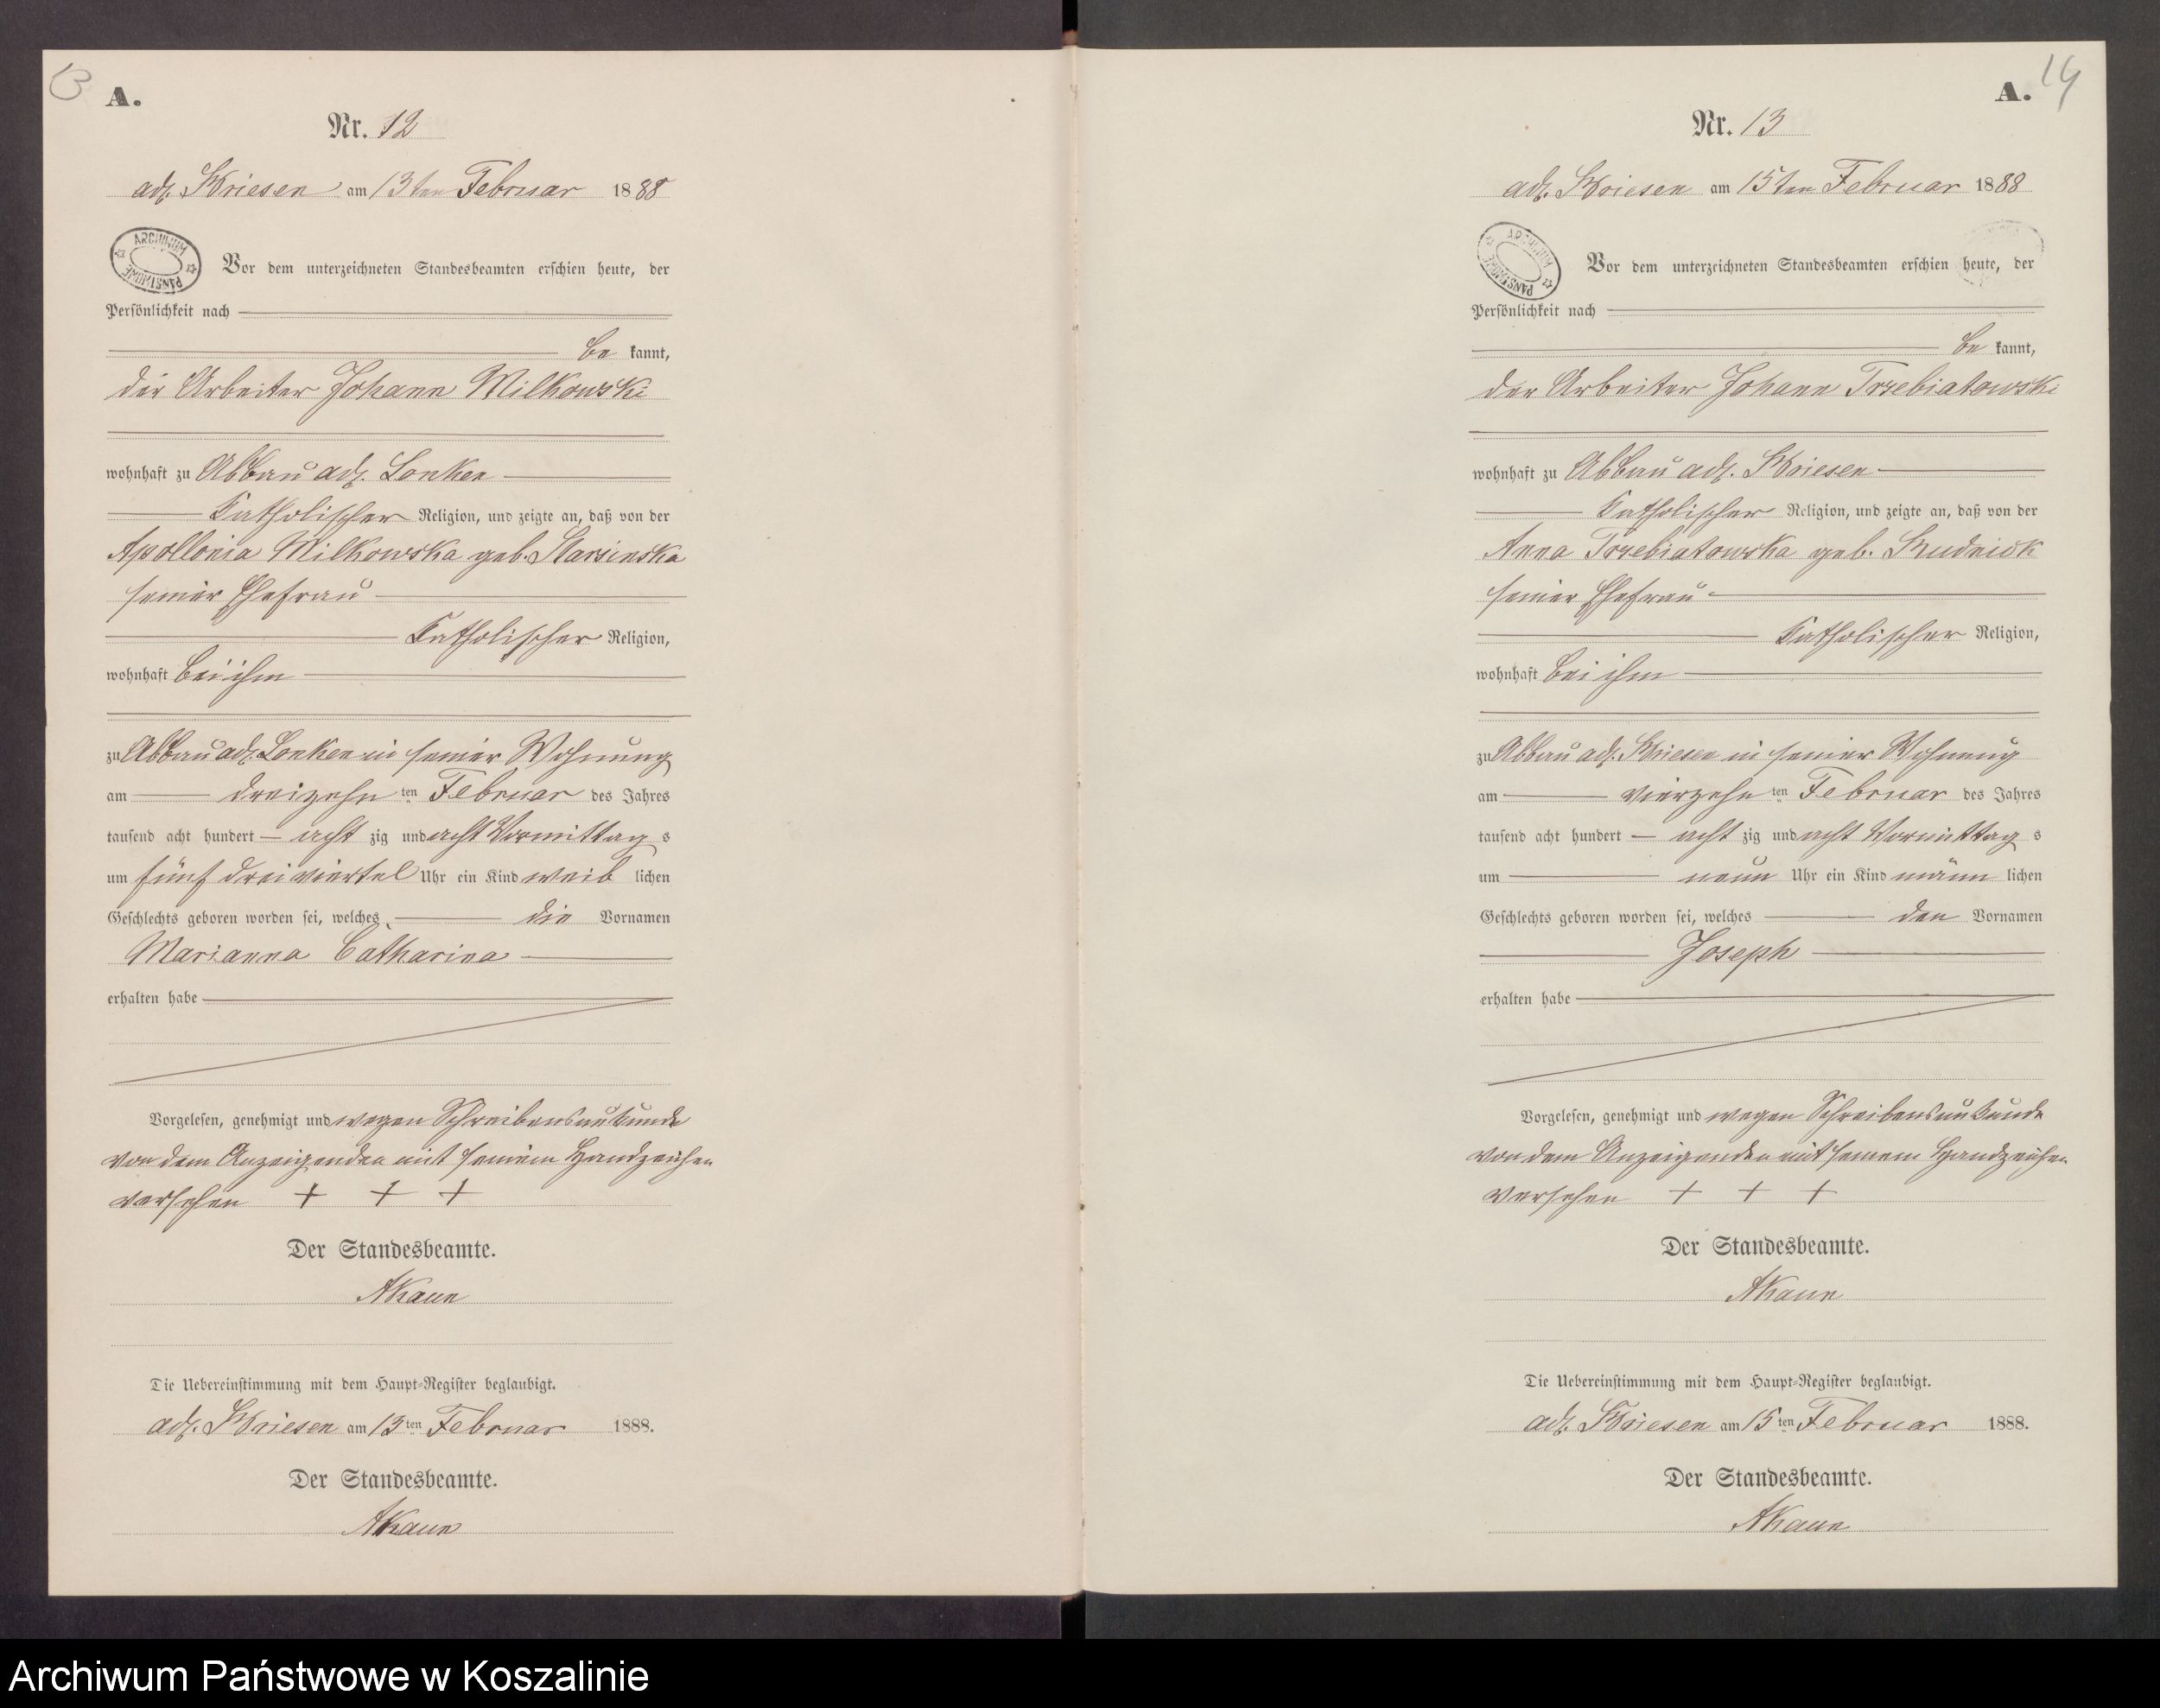 13
A.
Nr. 12
adl. Briesen am 13ten Februar 1888
ARCHIWUM PAŃSTWOWE
Vor dem unterzeichneten Standesbeamten erschien heute, der
Persönlichkeit nach
be kannt,
der Arbeiter Johann Milkowski
wohnhaft zu Abbau adl. Lonken
Katholischer Religion, und zeigte an, daß von der
Apollonia Milkowska geb.
seiner Ehefrau
Katholischer Religion,
wohnhaft bei ihm
zu Abbau adl. Lonken in seiner Wohnung
am dreizehn ten Februar des Jahres
tausend acht hundert acht zig und acht Vormittag s
um fünf dreiviertel Uhr ein Kind weib lichen
Geschlechts geboren worden sei, welches die Vornamen
Marianna Catharina
erhalten habe
Vorgelesen, genehmigt und wegen Schreibensunkunde
von dem Anzeigenden mit seinem Handzeichen
versehen + + +
Der Standesbeamte.
Die Uebereinstimmung mit dem Haupt-Register beglaubigt.
adl. Briesen am 13ten Februar 1888.
Der Standesbeamte.
14
A.
Nr. 13
adl. Briesen am 15ten Februar 1888
ARCHIWUM PAŃSTWOWE
Vor dem unterzeichneten Standesbeamten erschien heute, der
Persönlichkeit nach
be kannt,
der Arbeiter Johann Trzebiatowski
wohnhaft zu Abbau adl. Briesen
Katholischer Religion, und zeigte an, daß von der
Anna Trzebiatowska geb. Rudnick
seiner Ehefrau
Katholischer Religion,
wohnhaft bei ihm
zu Abbau adl. Briesen in seiner Wohnung
am vierzehn ten Februar des Jahres
tausend acht hundert acht zig und acht Vormittag s
um neun Uhr ein Kind männ lichen
Geschlechts geboren worden sei, welches den Vornamen
Joseph
erhalten habe
Vorgelesen, genehmigt und wegen Schreibensunkunde
von dem Anzeigenden mit seinem Handzeichen
versehen + + +
Der Standesbeamte.
Die Uebereinstimmung mit dem Haupt-Register beglaubigt.
adl. Briesen am 15ten Februar 1888.
Der Standesbeamte.
Archiwum Państwowe w Koszalinie